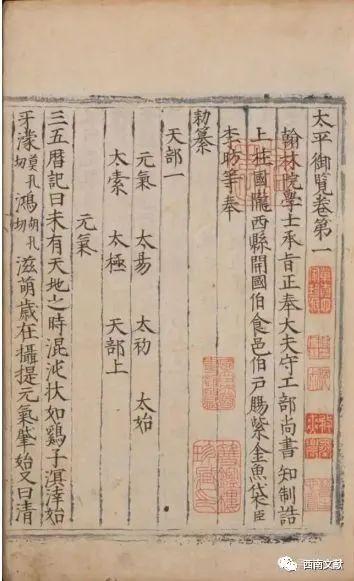 太平御覽卷第一
翰林院學士承旨正奉大夫守工部尚書知制誥
上柱國隴西縣開國伯食邑伯戸腸紫金魚袋臣
李昉等奉
勑纂
天部一
元氣 太易 太初 太始
太素 太極 天部上
元氣
三五曆記曰未有天地之時混沌狀如鷄子溟涬始
牙濛莫孔切鴻胡孔切滋萌歳在攝提元氣肇始又曰清
西南文献